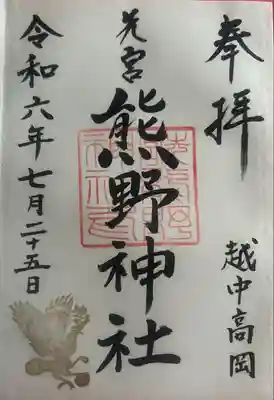 奉拝
越中高岡
先宮
熊野神社
令和六年七月二十五日